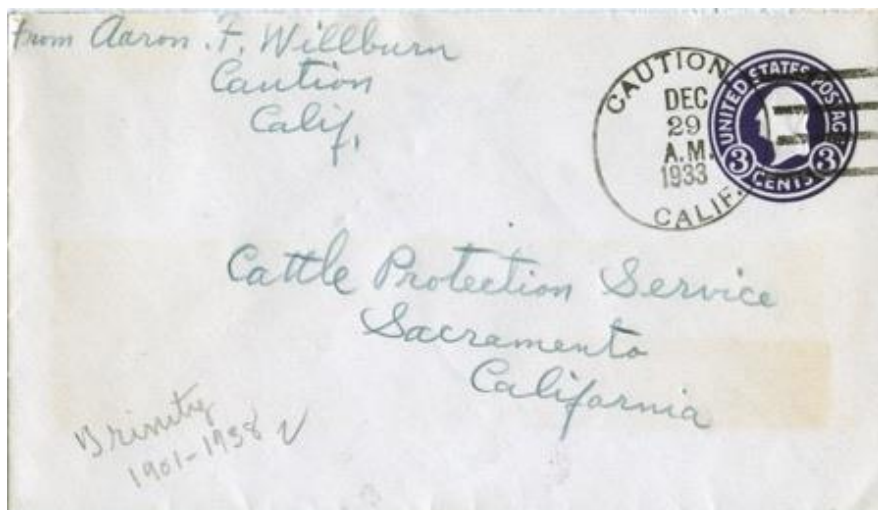 from Aaron .F. Willburn
Caution
Calif.
CAUTION
DEC
29
A.M.
1933
CALIF.
UNITED STATES POSTAGE
3 3
CENTS
Cattle Protection Service
Sacramento
California
Trinity
1901-1938 √